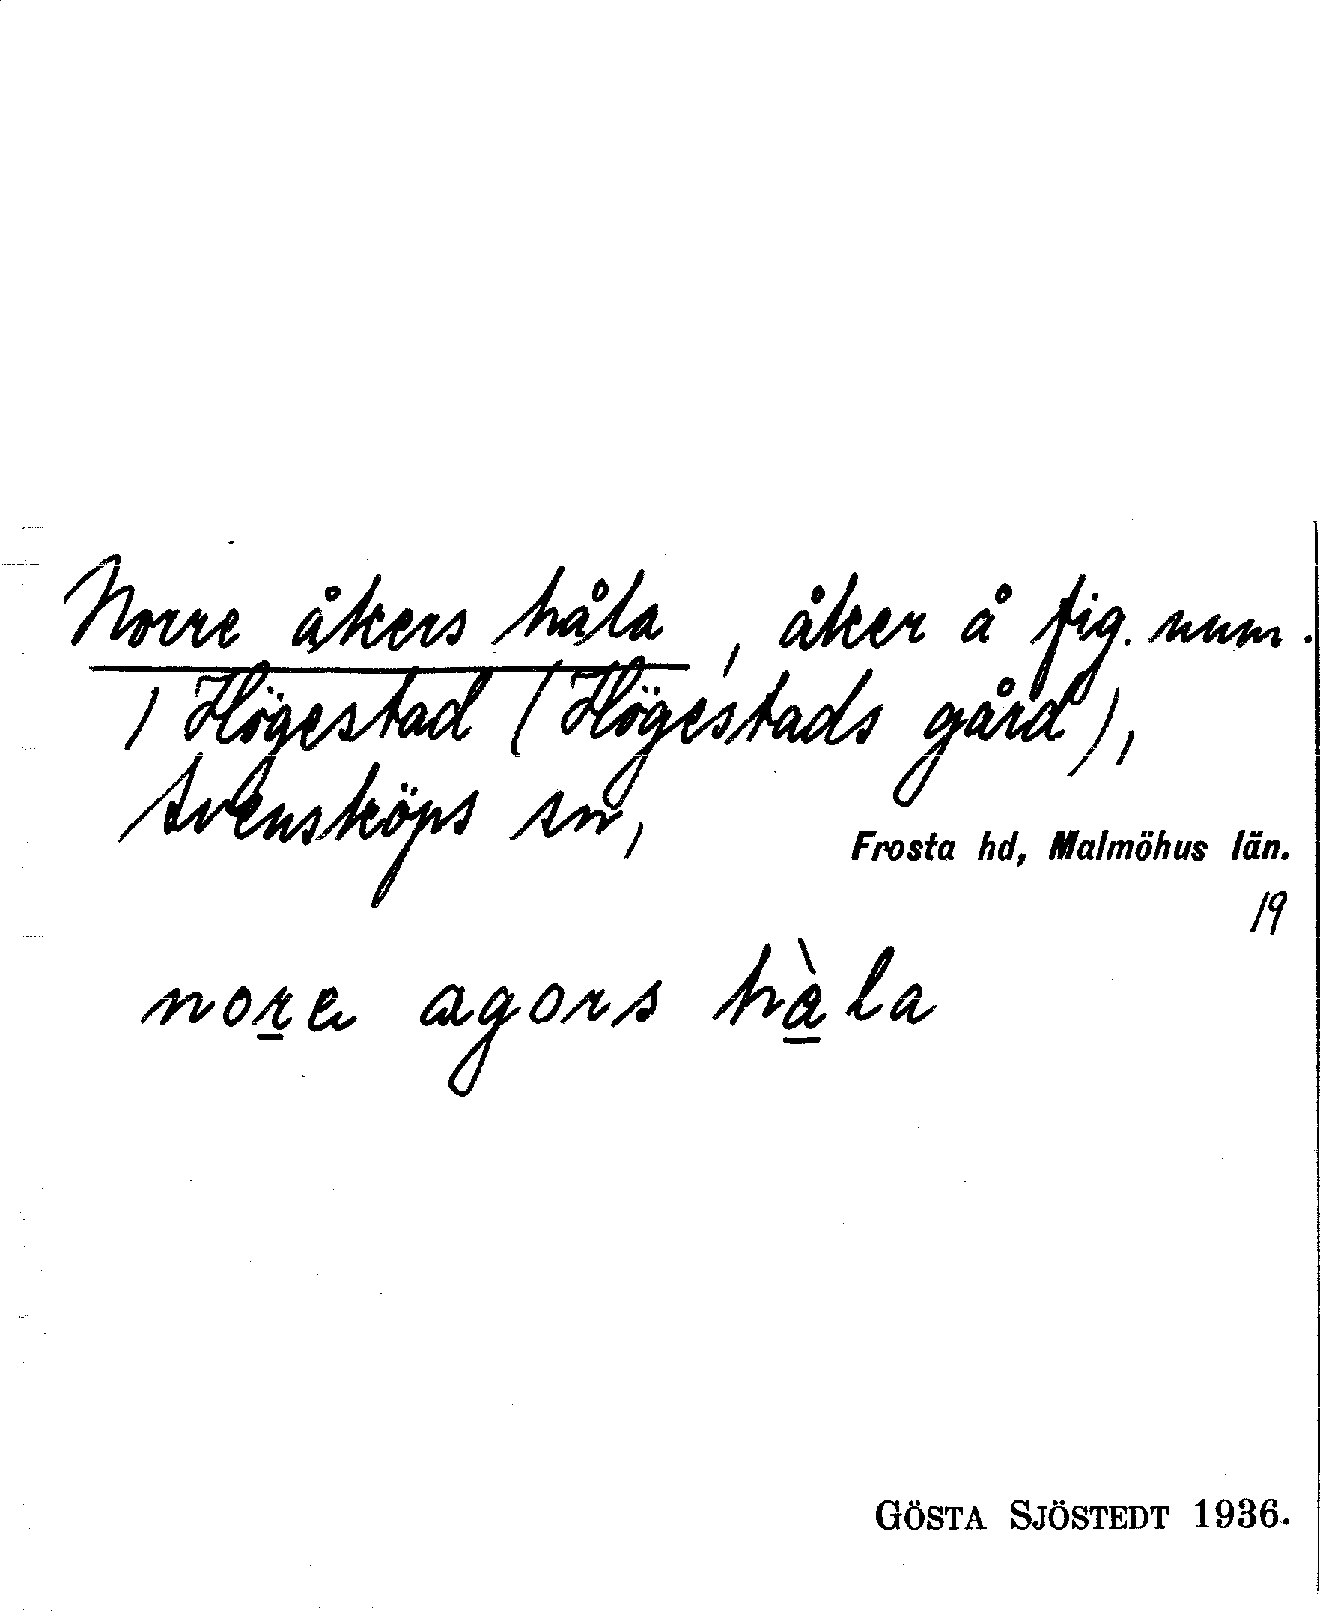 Norre åkers håla, åker å fig. num.
1 Högestad (Högestads gård),
Svensköps sn,
Frosta hd, Malmöhus län.
19
nore agors hàla
GÖSTA SJÖSTEDT 1936.